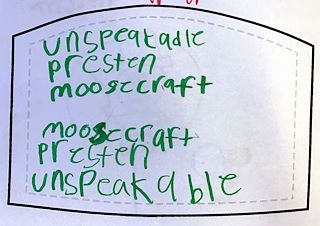 unspeakadle
presten
moosecraft
moosecraft
presten
unspeakable